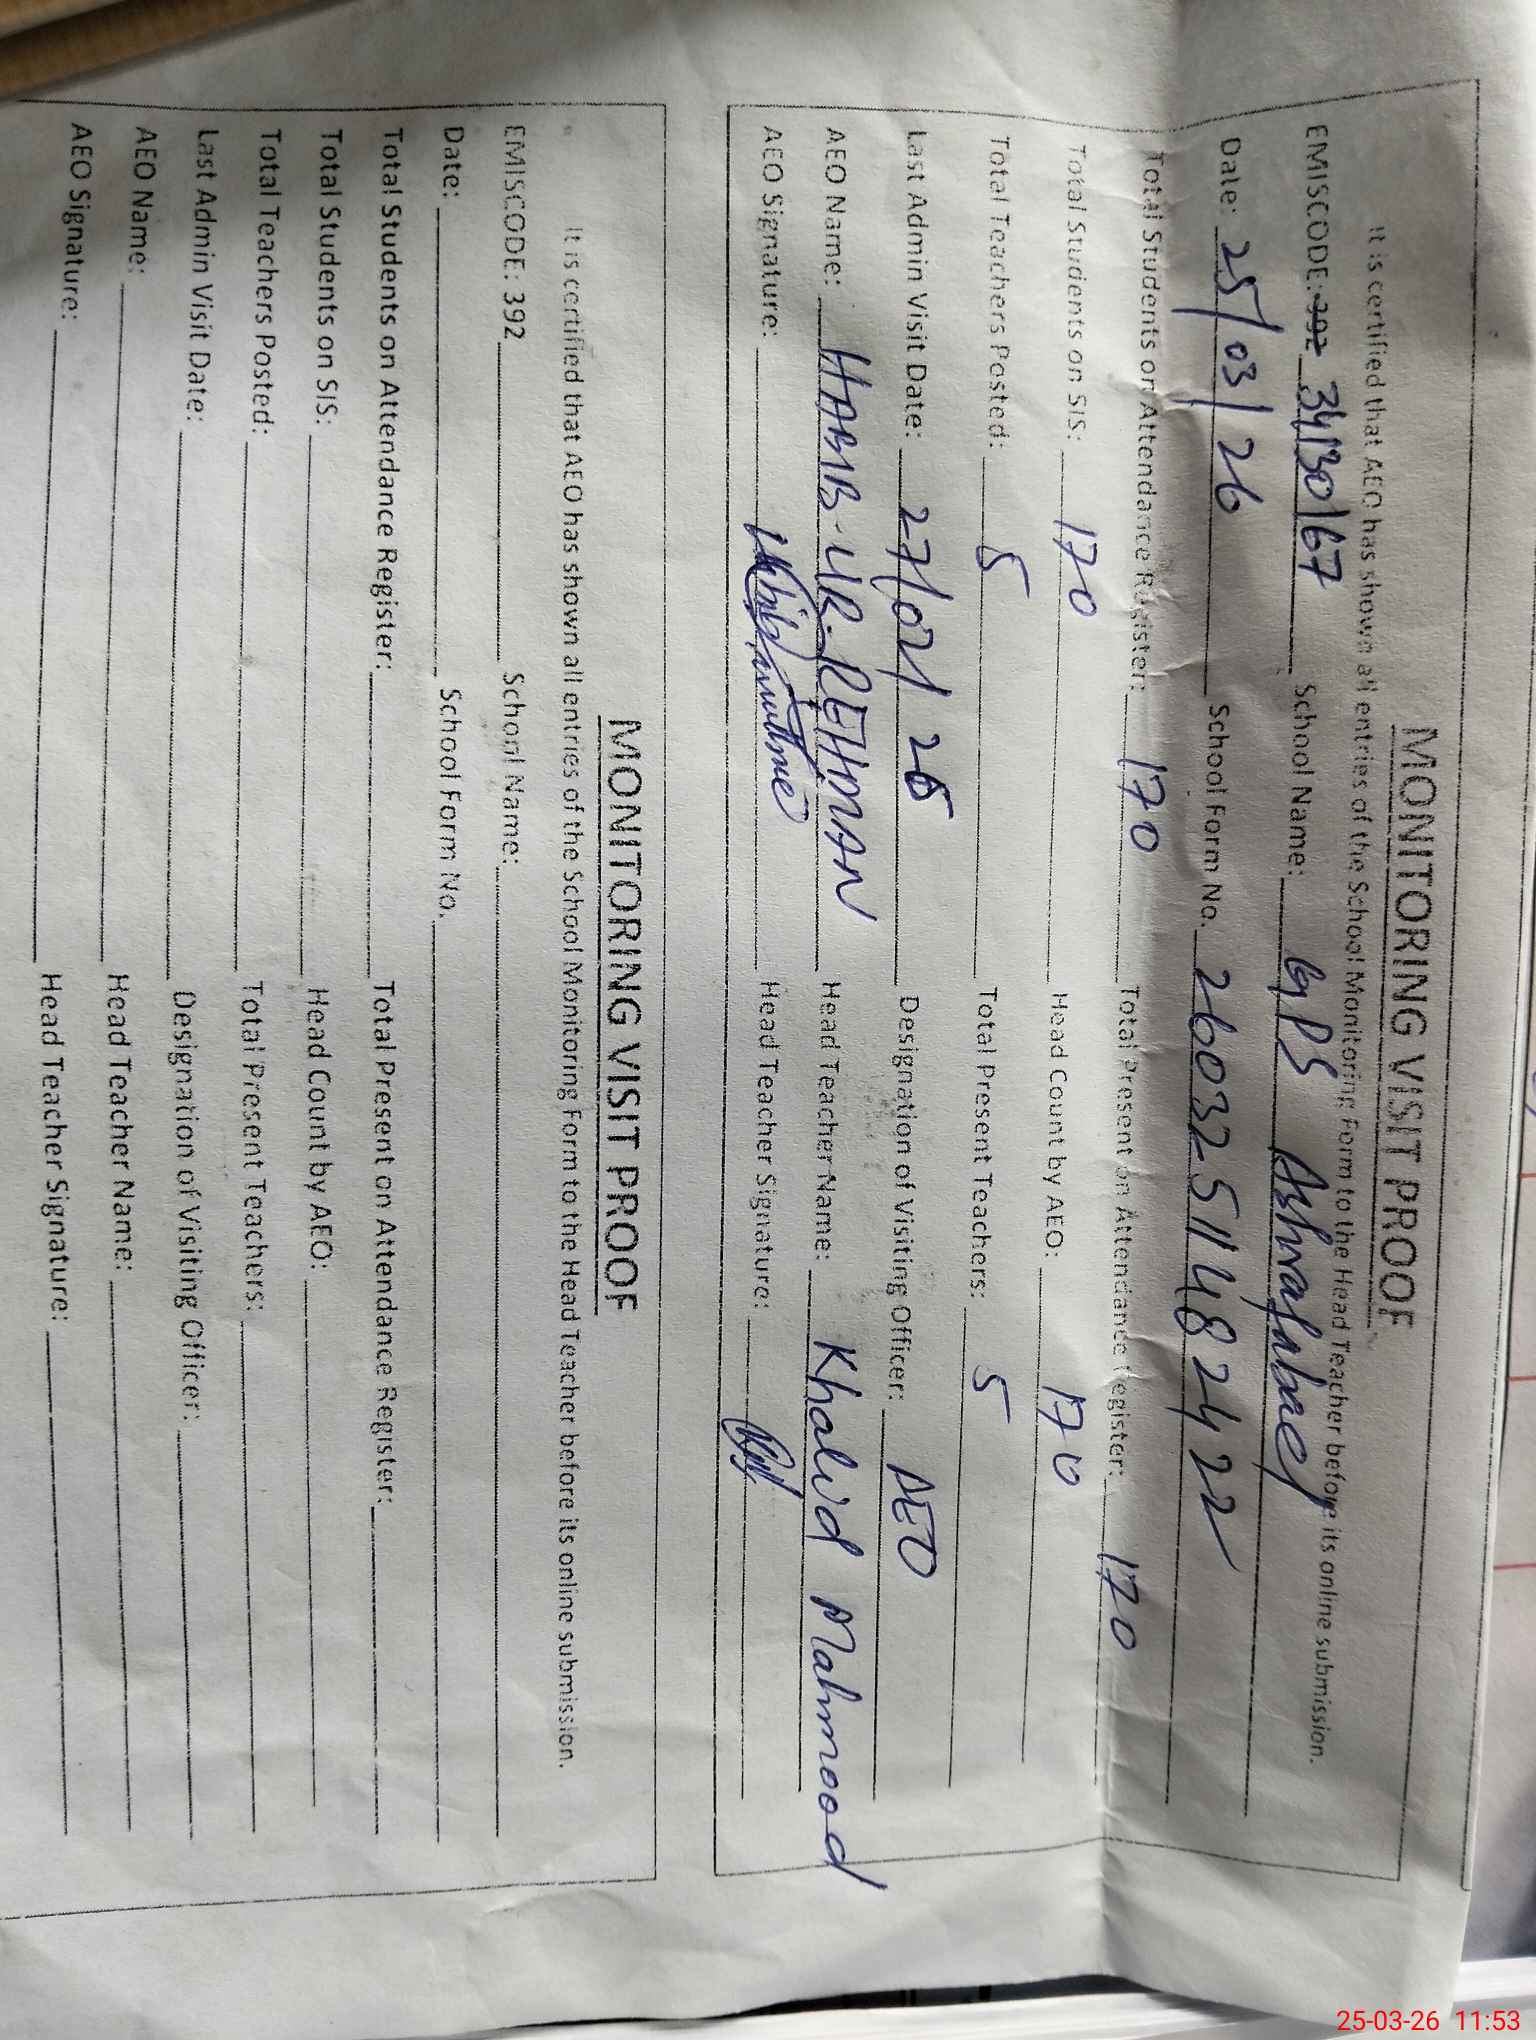 MONITORING VISIT PROOF
It is certified that AEO has shown all entries of the School Monitoring Form to the Head Teacher before its online submission.
EMISCODE: 392 34130167 School Name: GPS Ashrafabad
Date: 25/03/26 School Form No. 26032511482422
Total Students on Attendance Register: 170 Total Present on Attendance Register: 170
Total Students on SIS: 170 Head Count by AEO: 170
Total Teachers Posted: 5 Total Present Teachers: 5
Last Admin Visit Date: 27/02/26 Designation of Visiting Officer: AEO
AEO Name: HABIB-UR-REHMAN Head Teacher Name: Khalid Mahmood
AEO Signature: Head Teacher Signature:
MONITORING VISIT PROOF
It is certified that AEO has shown all entries of the School Monitoring Form to the Head Teacher before its online submission.
EMISCODE: 392 School Name:
Date: School Form No.
Total Students on Attendance Register: Total Present on Attendance Register:
Total Students on SIS: Head Count by AEO:
Total Teachers Posted: Total Present Teachers:
Last Admin Visit Date: Designation of Visiting Officer:
AEO Name: Head Teacher Name:
AEO Signature: Head Teacher Signature:
25-03-26 11:53